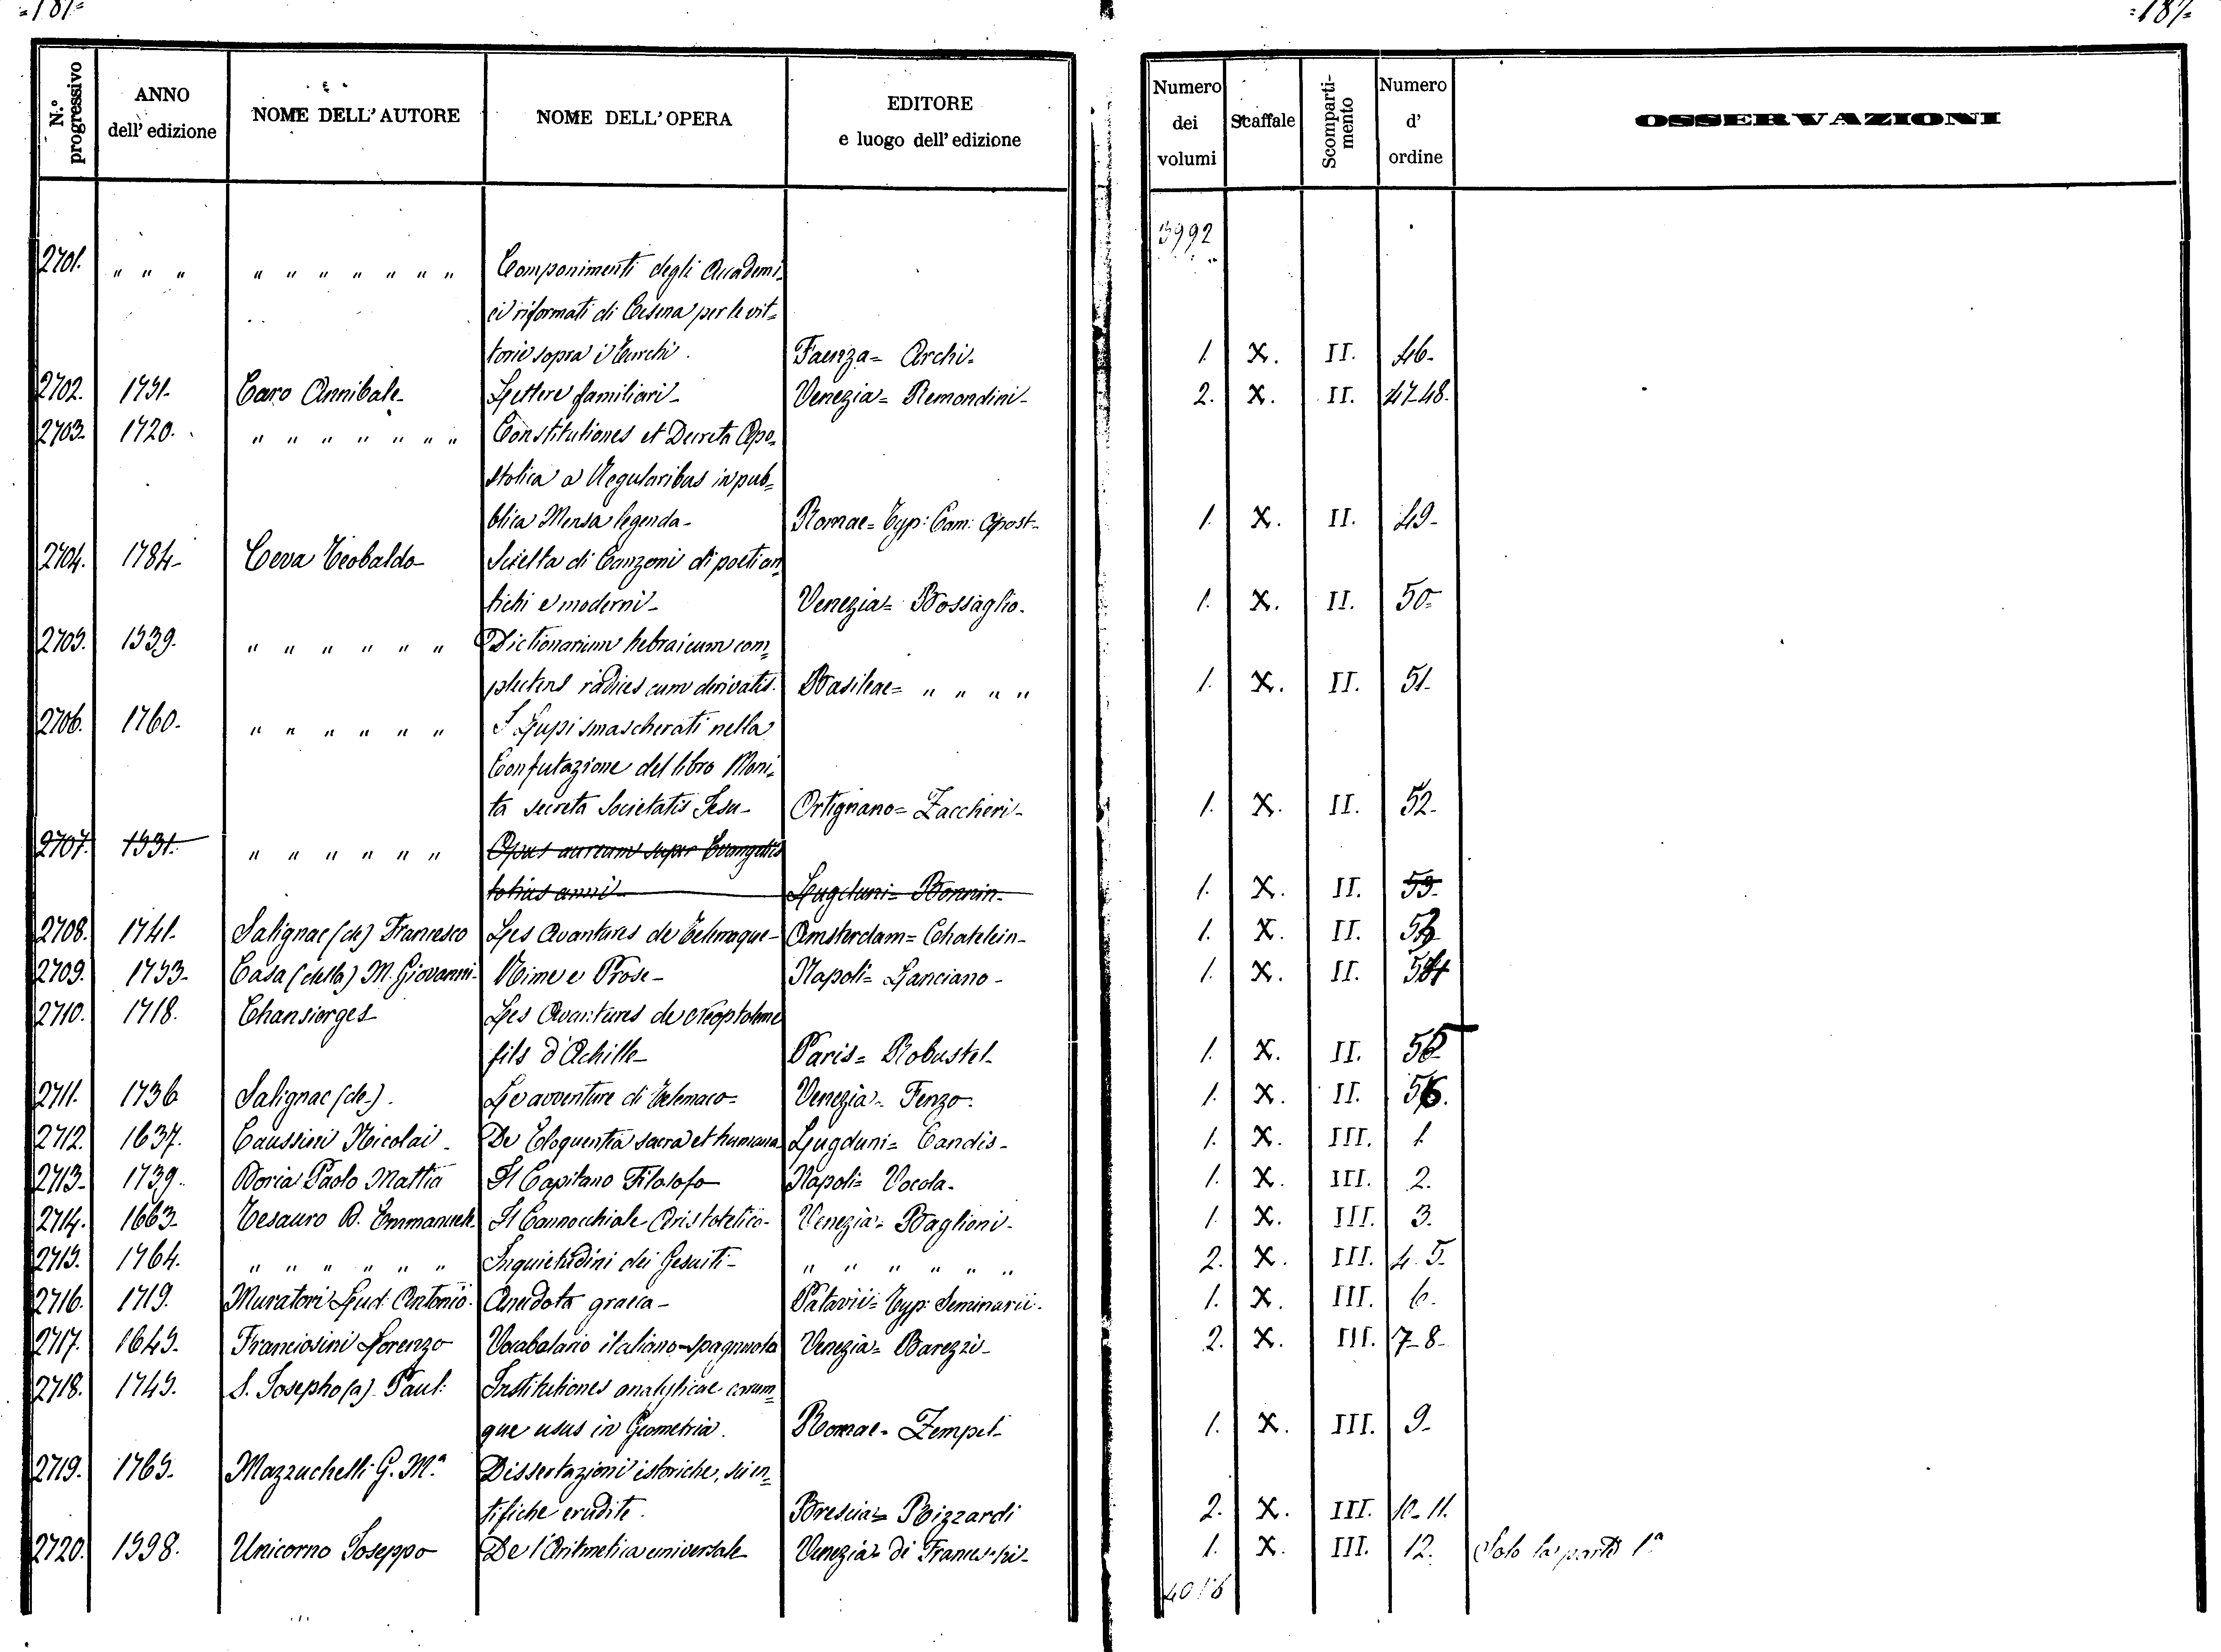 =181= =181=
N.° progressivo | ANNO dell' edizione | NOME DELL' AUTORE | NOME DELL' OPERA | EDITORE e luogo dell' edizione | Numero dei volumi | Scaffale | Scomparti-mento | Numero d' ordine | OSSERVAZIONI
3992
2701. " " " " " " " " " " " Componimenti degli Accademi=
ci riformati di Cesena per le vit=
torie sopra i Turchi. Faenza= Archi- 1. X. II. 46-
2702. 1751- Caro Annibale- Lettere familiari- Venezia= Remondini- 2. X. II. 47-48.
2703- 1720. " " " " " " " " Constitutiones et Decreta Apo=
stolica a Regularibus in pub=
blica Mensa legenda- Romae= Typ: Cam: Apost- 1. X. II. 49-
2704. 1784- Ceva Teobaldo- Scielta di Canzoni di poeti an
tichi e moderni- Venezia= Bossaglio. 1. X. II. 50-
2705. 1539. " " " " " " Dictionarium hebraicum com=
plectens radices cum derivatis. Basileae= " " " " 1. X. II. 51-
2706. 1760. " " " " " " I Lupi smascherati nella
Confutazione del libro Moni=
ta secreta Societatis Jesu- Ortignano= Zaccheri- 1. X. II. 52-
2707. 1531. " " " " " " Opus aureum super Evangeliis
totius anni- Lugduni= Bonnin- 1. X. II. 53-
2708. 1741- Salignac (de) Francesco Les Avantures de Telemaque- Amsterdam= Chatelein- 1. X. II. 53
2709. 1753- Casa (della) M. Giovanni- Rime e Prose- Napoli= Lanciano- 1. X. II. 54
2710. 1718. Chansierges Les Avantures de Neoptoleme
fils d'Achille- Paris= Robustel- 1. X. II. 55
2711. 1736 Salignac (de-). Le avventure di Telemaco= Venezia= Fenzo. 1. X. II. 56.
2712. 1637. Caussini Nicolai- De Eloquentia sacra et humana Lugduni= Candis- 1. X. III. 1.
2713- 1739. Doria Paolo Mattia Il Capitano Filosofo Napoli= Vocola. 1. X. III. 2.
2714. 1663- Tesauro D. Emmanuele Il Cannocchiale Aristotelico- Venezia= Baglioni- 1. X. III. 3.
2715. 1764. " " " " " " Inquietudini dei Gesuiti- " " " " " " 2. X. III. 4. 5.
2716. 1719. Muratori Lud: Antonio- Anecdota graeca- Patavii= Typ: Seminarii. 1. X. III. 6.
2717. 1645- Franciosini Lorenzo Vocabolario italiano-spagnuolo Venezia= Barezzi- 2. X. III. 7-8-
2718. 1745. S. Josepho (a) Paul: Institutiones analyticae earum=
que usus in Geometria. Romae= Zempel- 1. X. III. 9-
2719. 1765- Mazzuchelli G. M.ª Dissertazioni istoriche, scien=
tifiche erudite. Brescia= Rizzardi 2. X. III. 10-11.
2720. 1598. Unicorno Joseppo De l'Aritmetica universale Venezia= di Franceschi- 1. X. III. 12. Solo la parte 1ª
4016